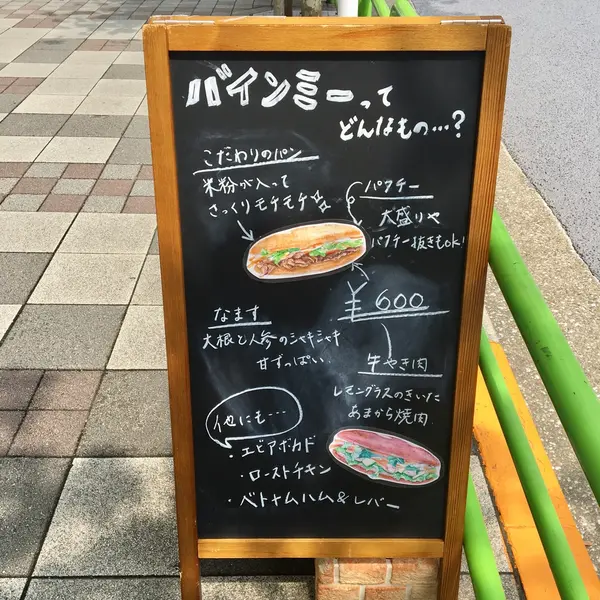 バインミーって
どんなもの…?
こだわりのパン
米粉が入って
さっくりモチモチ☆
パクチー
大盛りや
パクチー抜きもok!
¥600
なます
大根と人参のシャキシャキ
甘ずっぱい
牛やき肉
レモングラスのきいた
あまから焼肉
他にも…
・エビアボカド
・ローストチキン
・ベトナムハム&レバー